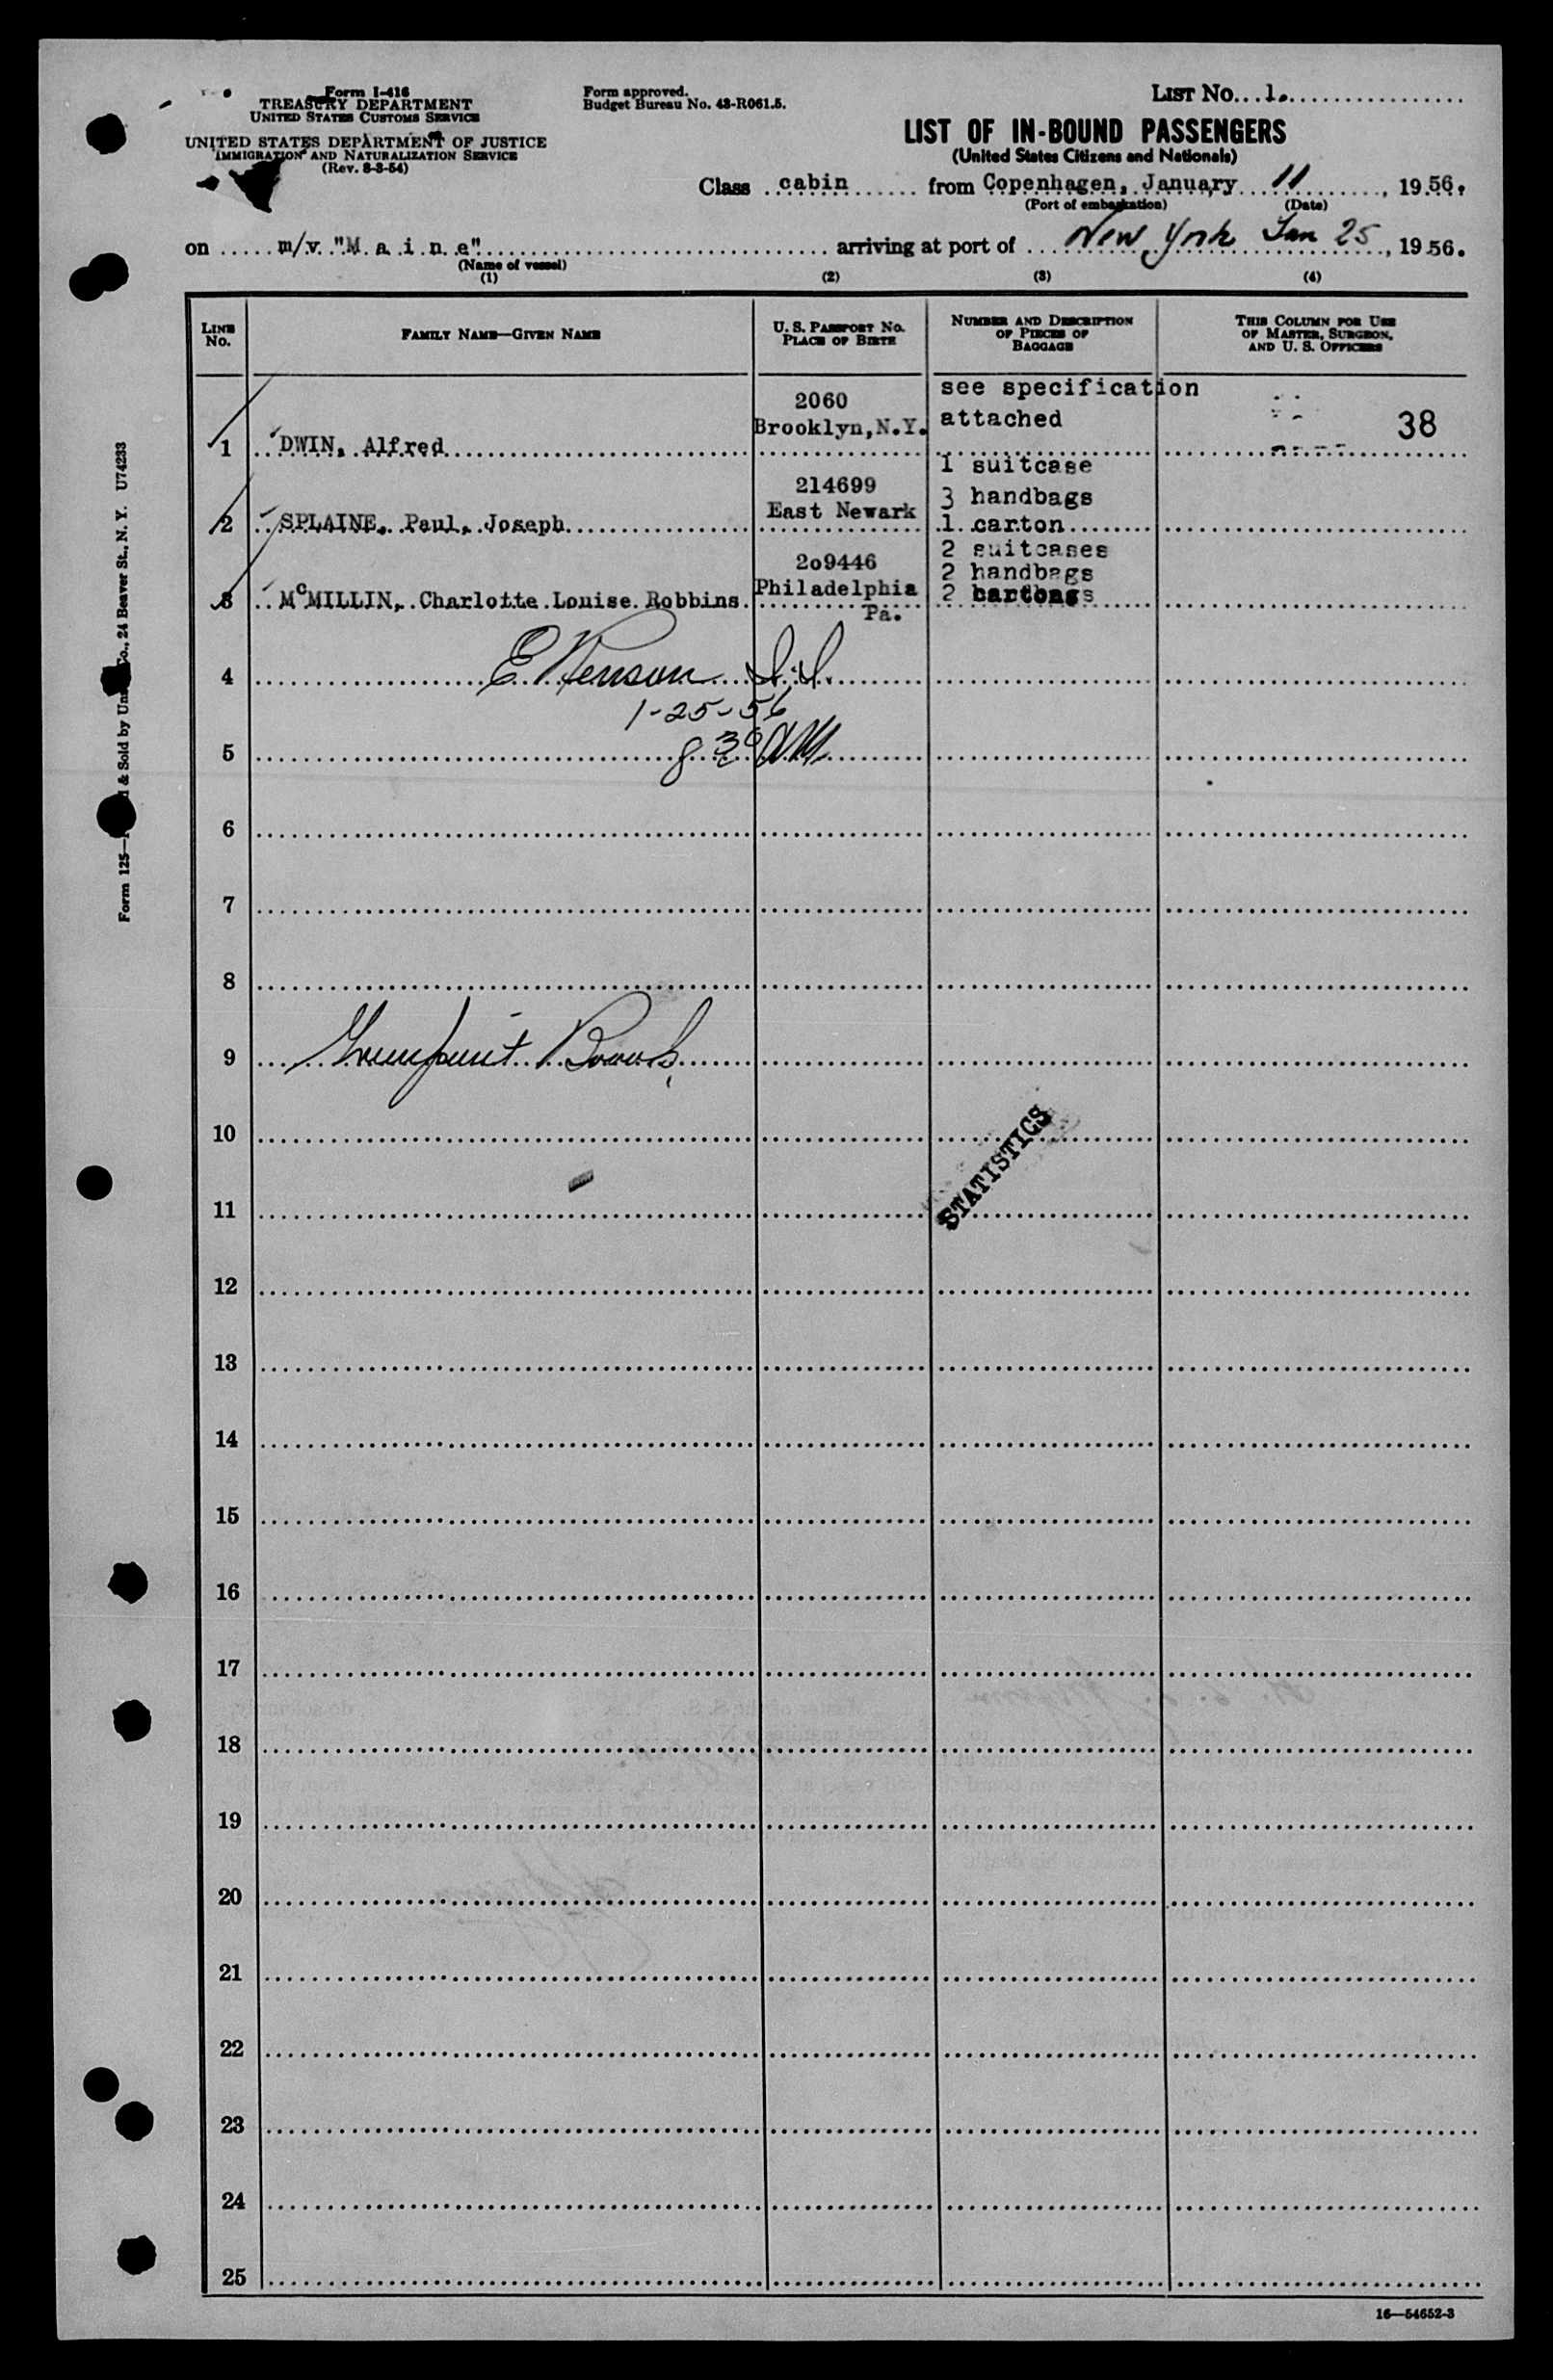 Form I-416
TREASURY DEPARTMENT
UNITED STATES CUSTOMS SERVICE
UNITED STATES DEPARTMENT OF JUSTICE
IMMIGRATION AND NATURALIZATION SERVICE
(Rev. 8-3-54)
Form approved.
Budget Bureau No. 43-R061.5.
LIST No. 1.
LIST OF IN-BOUND PASSENGERS
(United States Citizens and Nationals)
Class cabin from Copenhagen, January 11, 1956.
(Port of embarkation) (Date)
on m/v. "M a i n e" arriving at port of New York Jan 25, 1956.
(Name of vessel)
(1) (2) (3) (4)
LINE No.
FAMILY NAME—GIVEN NAME
U. S. PASSPORT No.
PLACE OF BIRTH
NUMBER AND DESCRIPTION
OF PIECES OF
BAGGAGE
THIS COLUMN FOR USE
OF MASTER, SURGEON,
AND U. S. OFFICERS
1 DWIN, Alfred
2060
Brooklyn, N.Y.
see specification
attached
38
2 SPLAINE, Paul, Joseph
214699
East Newark
1 suitcase
3 handbags
1 carton
3 McMILLIN, Charlotte Louise Robbins
2o9446
Philadelphia
Pa.
2 suitcases
2 handbags
2
4 E
1-25-56
5 8 30 AM
6
7
8
9
10
STATISTICS
11
12
13
14
15
16
17
18
19
20
21
22
23
24
25
16—54652-3
Form 125— & Sold by Co., 24 Beaver St., N. Y. U74233